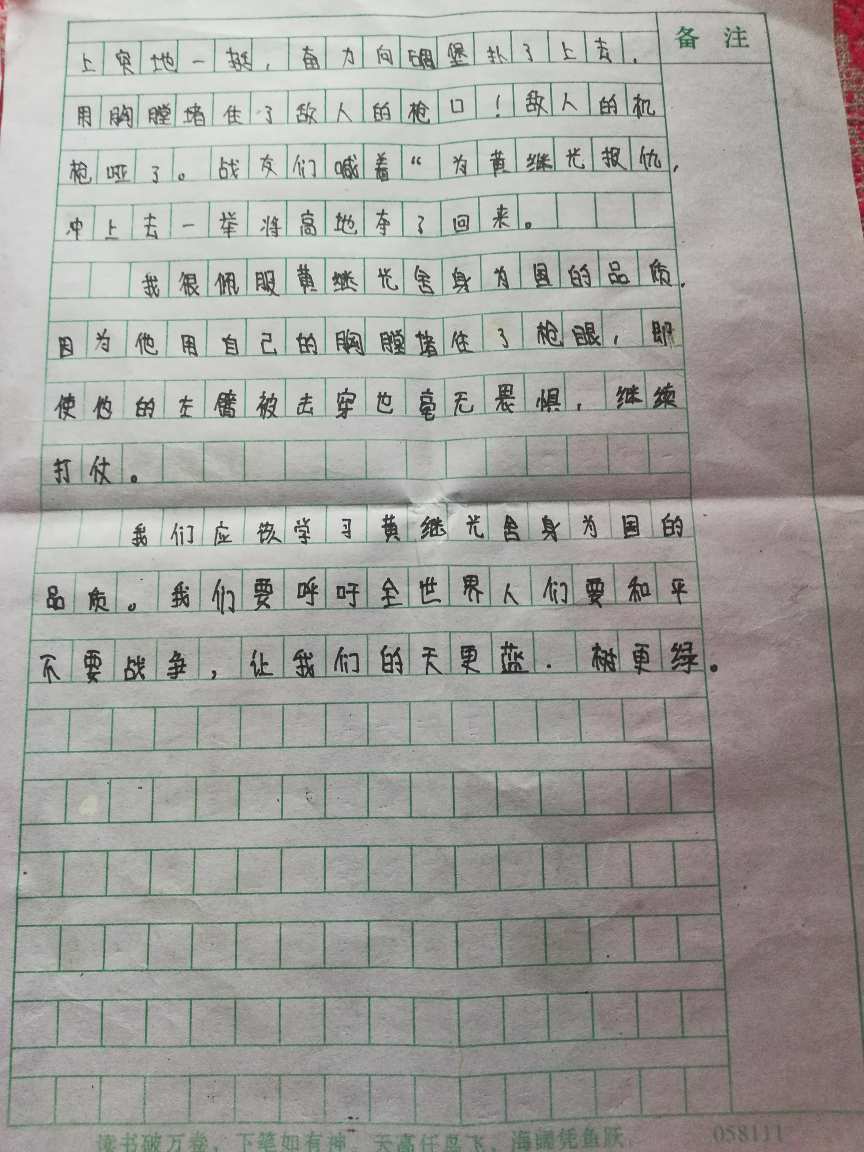 备 注
上突地一挺，奋力向碉堡扑了上去，
用胸膛堵住了敌人的枪口！敌人的机
枪哑了。战友们喊着“为黄继光报仇，
冲上去一举将高地夺了回来。
我很佩服黄继光舍身为国的品质，
因为他用自己的胸膛堵住了枪眼，即
使他的左臂被击穿也毫无畏惧，继续
打仗。
我们应该学习黄继光舍身为国的
品质。我们要呼吁全世界人们要和平
不要战争，让我们的天更蓝．树更绿。
读书破万卷，下笔如有神。天高任鸟飞，海阔凭鱼跃 058111